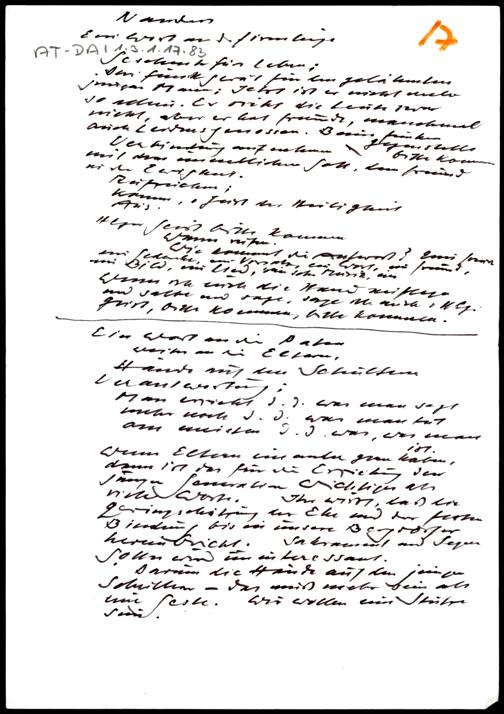 Nanders
Ein Wort an die Firmlinge
AT-DAI 1.3.1.17.83
17
Geschenk für Leben;
Das Funkgerät für den gelähmten
jungen Mann; Jetzt ist er nicht mehr
so allein. Er sieht die Leute zwar
nicht, aber er hat Freunde, manchmal
auch Leidensgenossen. Beim Funken
Gegenstelle
Verbindung aufnehmen bitte kommen
mit dem unendlichen Gott, dem Freund
in der Ewigkeit.
Rufzeichen;
Komm, o Geist der Heiligkeit
Aus.
Hl. Geist bitte kommen
Wann rufen.
Wie kommt die Antwort? Ein
ein Gedanke, ein Vorsatz, ein Wort, ein Freund,
ein Bild, ein Lied,
Wenn ich euch die Hand auflege
und salbe und sage, sage Hl.
Geist, bitte kommen, bitte kommen.
Ein Wort an die Paten
weiter an die Eltern,
Hände auf den Schultern
Verantwortung;
Man erzieht d. d. was man sagt
mehr noch d. d. was man tut
am meisten d. d. was, was man
ist.
Wenn Eltern haben,
dann ist das für die Erziehung der
jungen Generation wichtiger als
viele Worte. Ihr wißt, daß die
Geringschätzung der Ehe und der festen
Bindung bis in unsere Bergdörfer
hereinbricht. Sakrament und Segen
Gottes wird uninteressant.
Darum die Hände auf den jungen
Schultern - das muß mehr sein als
eine Geste. Wir wollen eine Stütze
sein.